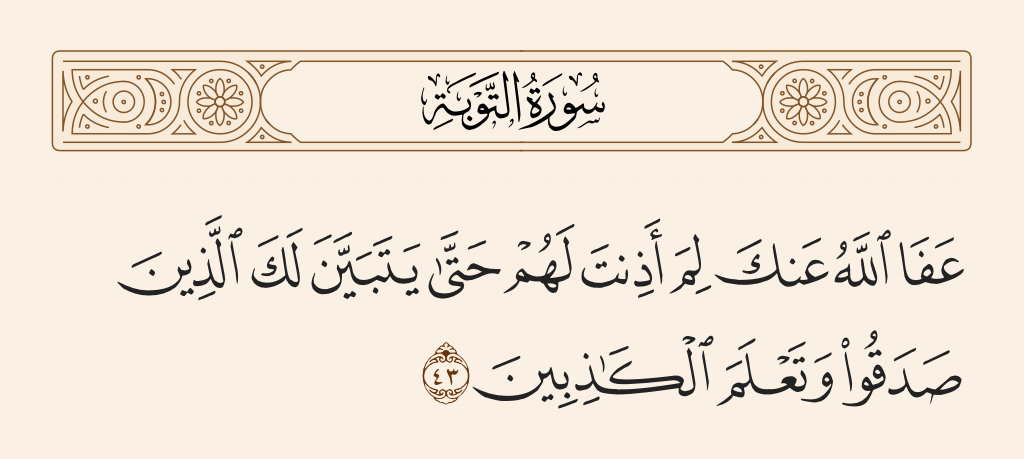 سُورَةُ التَّوْبَةِ
عَفَا ٱللَّهُ عَنكَ لِمَ أَذِنتَ لَهُمْ حَتَّىٰ يَتَبَيَّنَ لَكَ ٱلَّذِينَ
صَدَقُوا۟ وَتَعْلَمَ ٱلْكَـٰذِبِينَ ٤٣